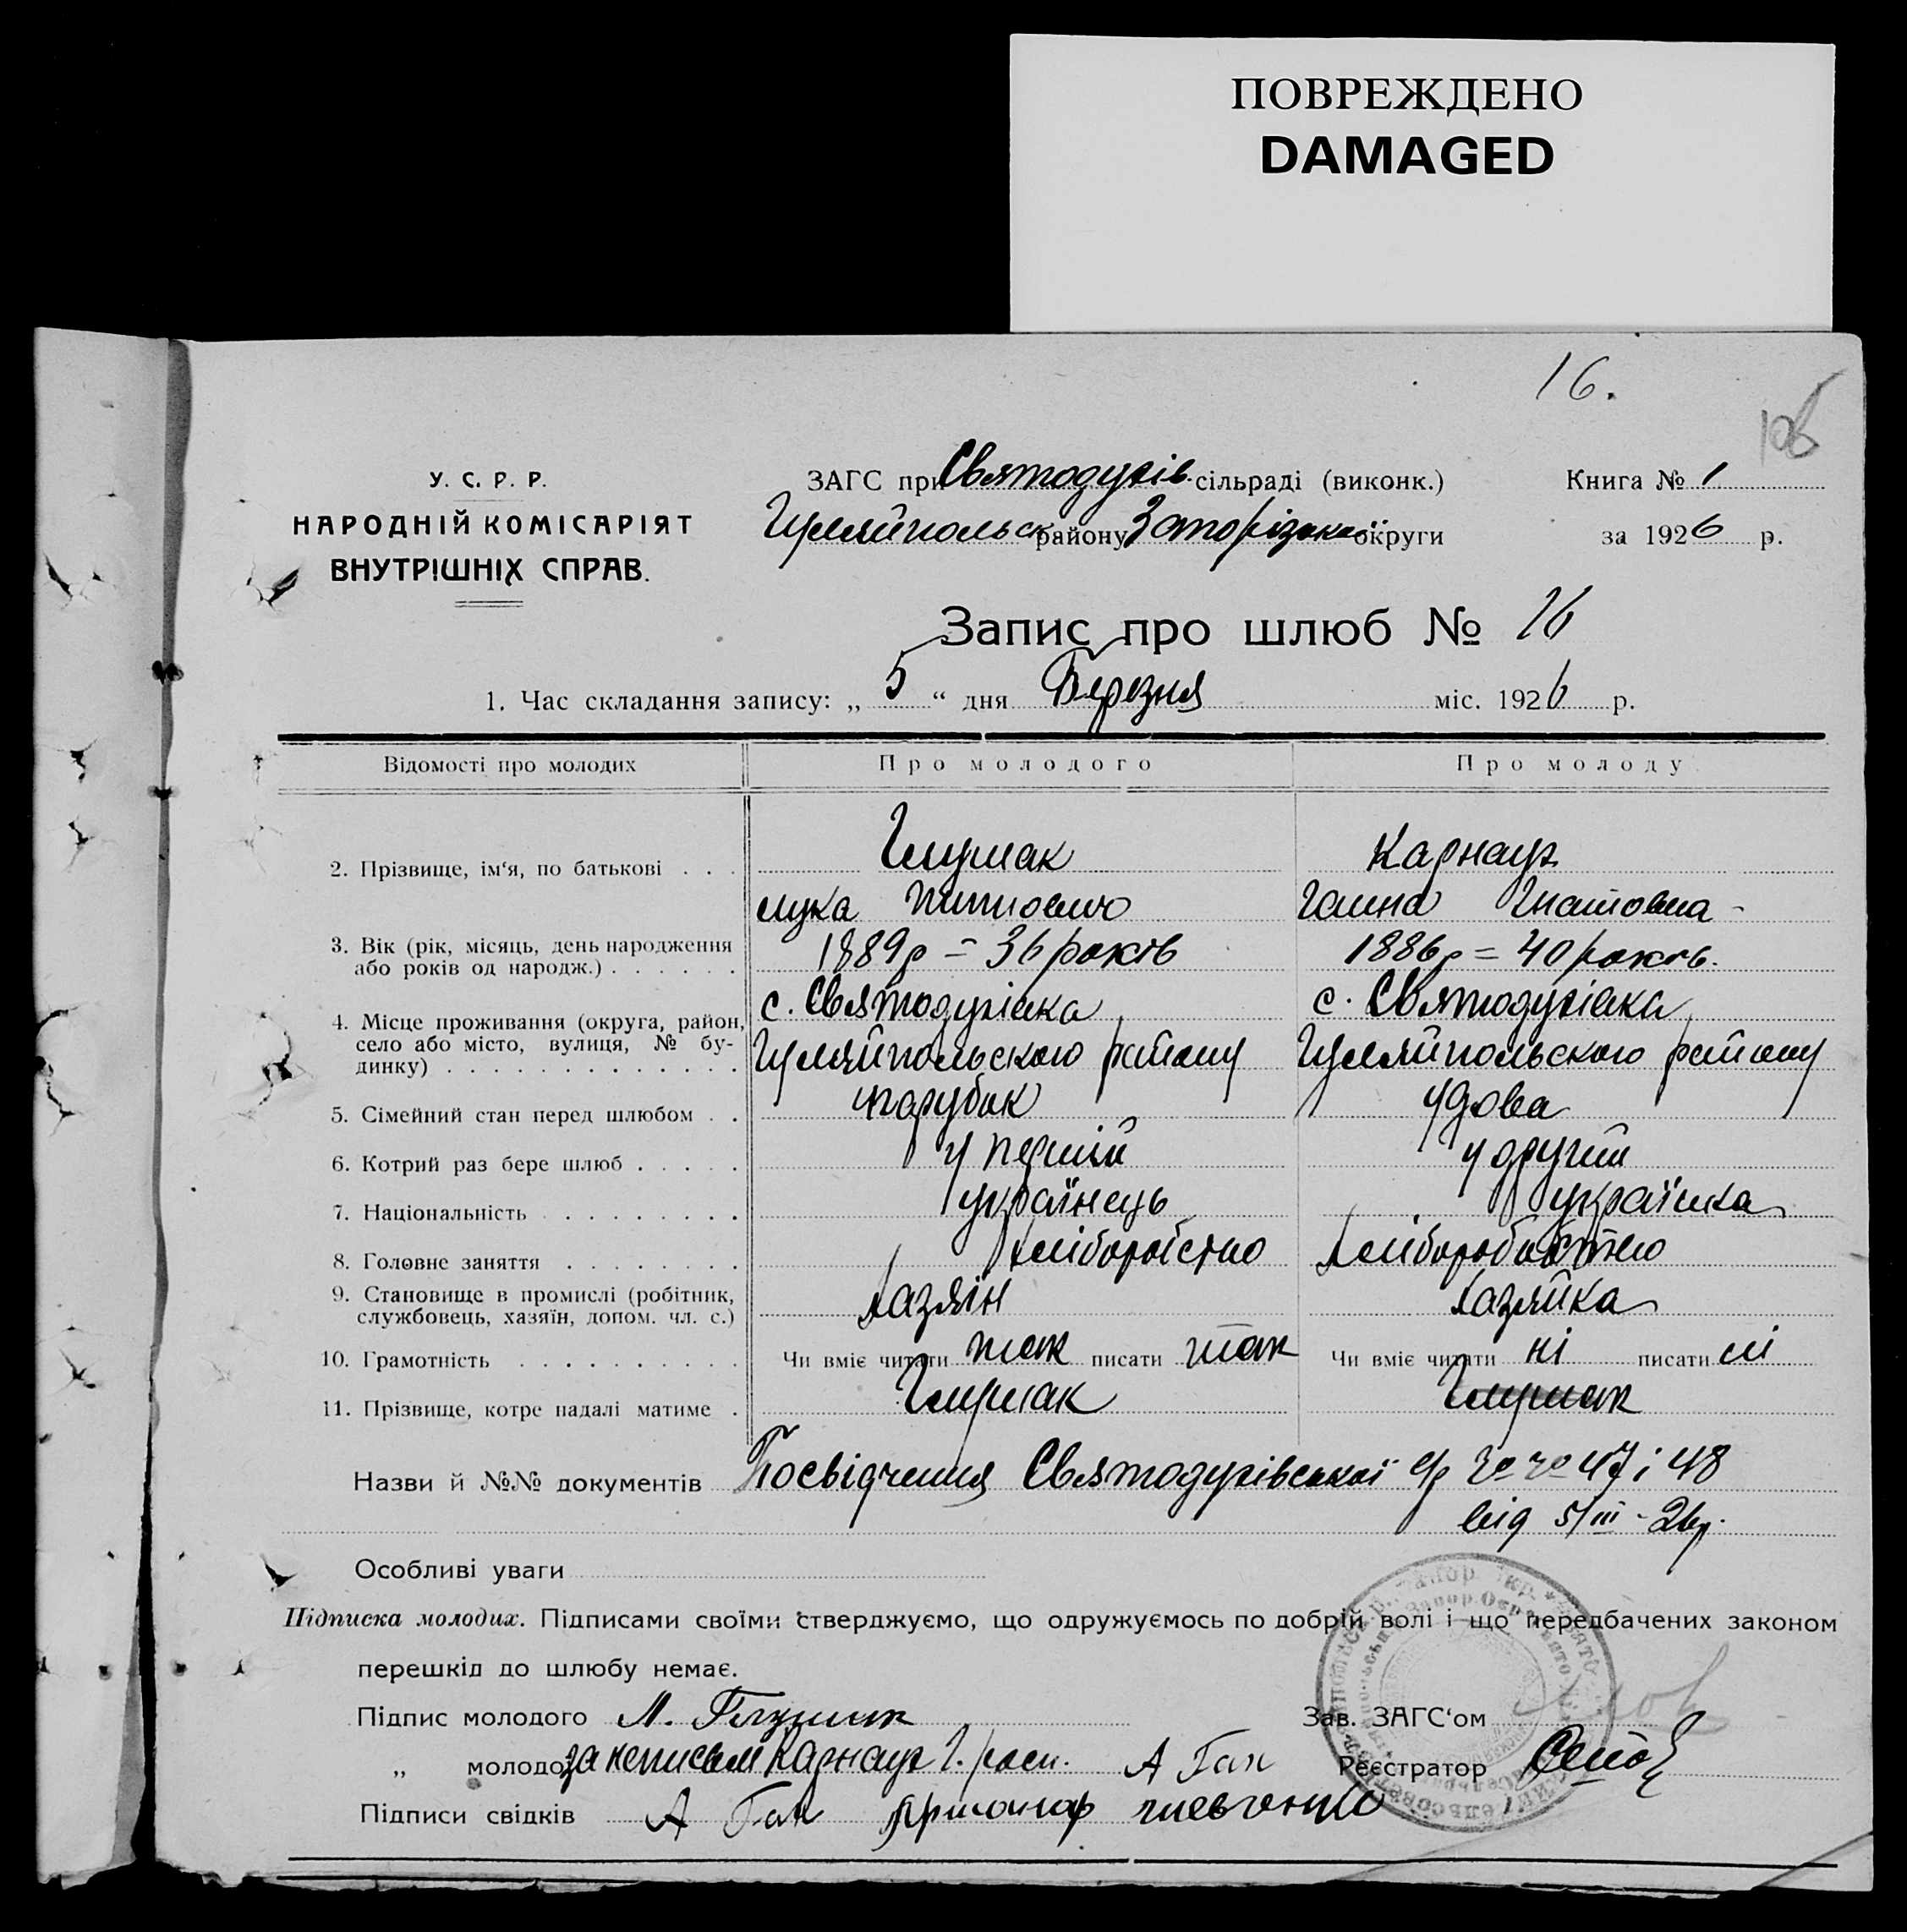 ПОВРЕЖДЕНО
DAMAGED
16.
У. С. Р. Р.
НАРОДНІЙ КОМІСАРІЯТ
ВНУТРІШНІХ СПРАВ.
ЗАГС при Святодухів. сільраді (виконк.)
Книга № 1
Гуляйпольск району Запорізької округи
за 1926 р.
Запис про шлюб № 16
1. Час складання запису: „ 5 “ дня Березня міс. 1926 р.
Відомості про молодих
Про молодого
Про молоду
2. Прізвище, ім‘я, по батькові . . .
Глушак
Карнаух
лука
Ганна Гнатовна -
3. Вік (рік, місяць, день народження
або років од народж.) . . . . . .
1889р = 36 років
1886р = 40 років.
4. Місце проживання (округа, район,
село або місто, вулиця, № бу-
динку) . . . . . . . . . . . . .
с. Святодухівка
Гуляйпольского району
с. Святодухівка
Гуляйпольского району
5. Сімейний стан перед шлюбом . .
парубок
удова
6. Котрий раз бере шлюб . . . . .
у перший
у другий
7. Національність . . . . . . . . .
українець
українка
8. Головне заняття . . . . . . . .
9. Становище в промислі (робітник,
службовець, хазяїн, допом. чл. с.)
хазяїн
хазяйка
10. Грамотність . . . . . . . . . .
Чи вміє читати так писати так
Чи вміє читати ні писати ні
11. Прізвище, котре надалі матиме .
Глушак
Глушак
Назви й №№ документів Посвідчення Святодухівської с/р № № 47 і 48
від 5/III - 26р.
Особливі уваги
Підписка молодих. Підписами своїми стверджуємо, що одружуємось по добрій волі і що передбачених законом
перешкід до шлюбу немає.
Підпис молодого Л. Глушак
Зав. ЗАГС‘ом
„ молодо за неписьм Карнаух Г. росп. А Гак
Реєстратор
Підписи свідків А Гак шевченко